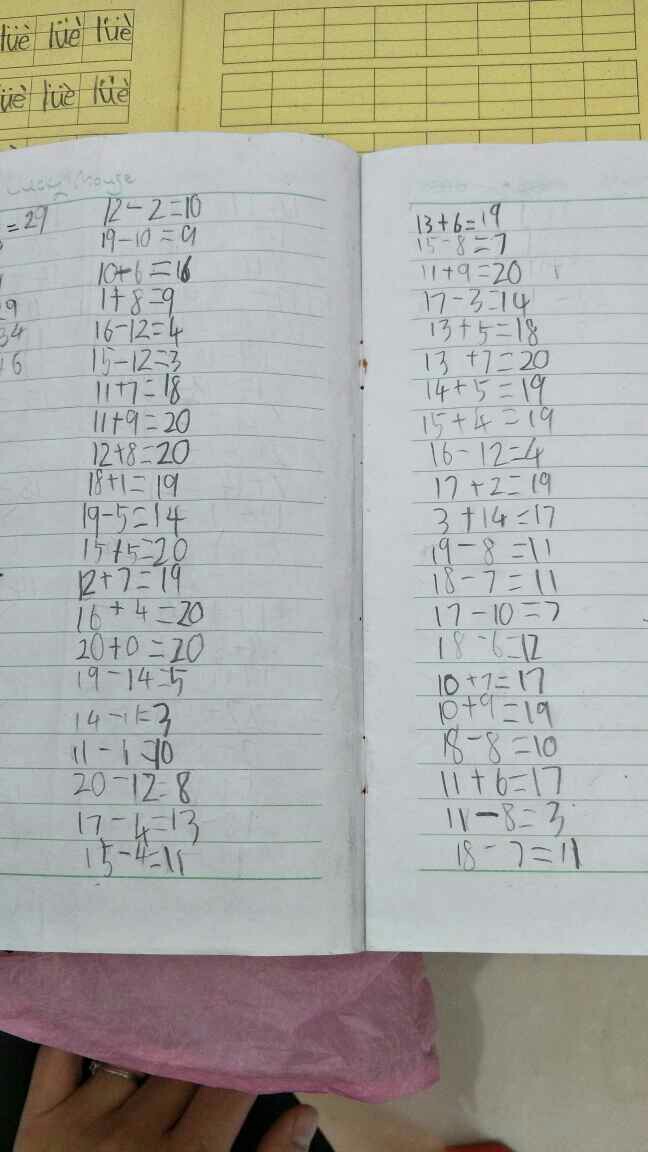 lüè lüè lüè
üè lüè lüè
Lucky Mouse
=29
9
34
6
12-2=10
19-10=9
10+6=16
1+8=9
16-12=4
15-12=3
11+7=18
11+9=20
12+8=20
18+1=19
19-5=14
15+5=20
12+7=19
16+4=20
20+0=20
19-14=5
14-11=3
11-1=10
20-12=8
17-4=13
15-4=11
13+6=19
15-8=7
11+9=20
17-3=14
13+5=18
13+7=20
14+5=19
15+4=19
16-12=4
17+2=19
3+14=17
19-8=11
18-7=11
17-10=7
18-6=12
10+7=17
10+9=19
18-8=10
11+6=17
11-8=3
18-7=11